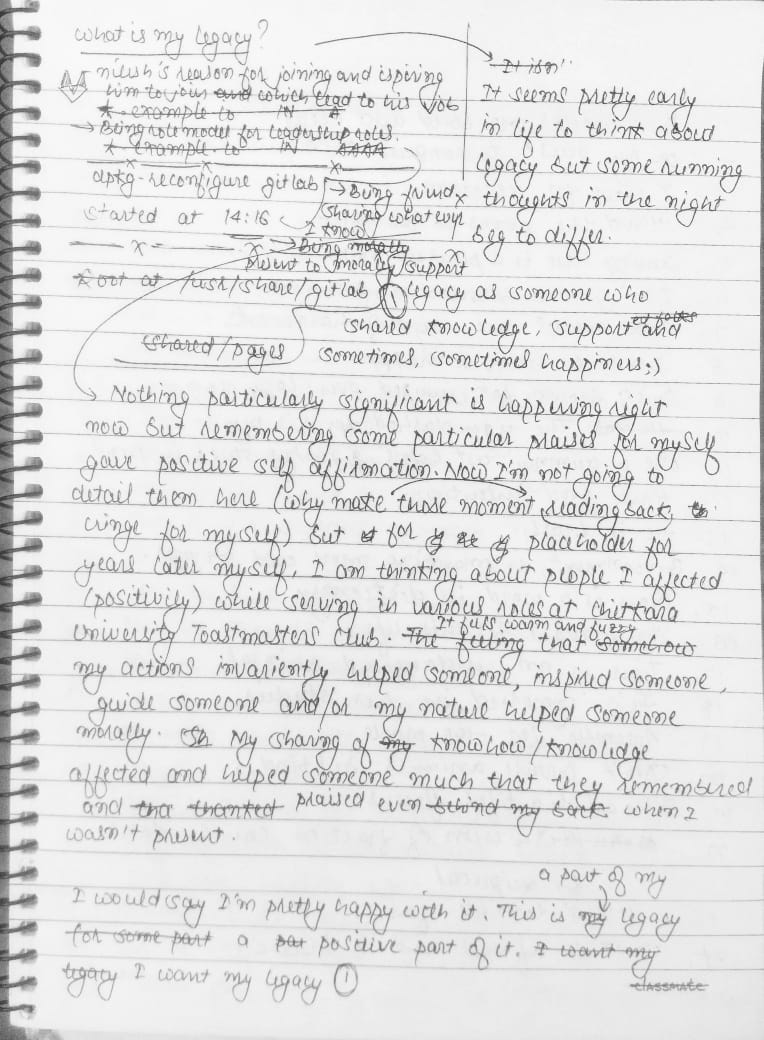 what is my legacy?
nilesh's reason for joining and ispiring
him to join and which lead to his job
* example to IN A
→ Being role model for leadership roles.
* example to IN AAAA
x x x
dpkg-reconfigure gitlab
→ Being friend x
started at 14:16
sharing what evr
I know
x x → Being morally x
present to (morally) support
Root at /usr/share/gitlab
shared/pages
It isn'
It seems pretty early
in life to think about
legacy but some running
thoughts in the night
beg to differ.
① legacy as someone who
shared knowledge, supported and
sometimes, sometimes happiness:)
→ Nothing particularly significant is happening right
now but remembering some particular praises for myself
gave positive self affirmation. Now I'm not going to
detail them here (why make those moment reading back, to
cringe for myself) but for placeholder for
years later myself, I am thinking about people I affected
(positively) while serving in various roles at Chitkara
University Toastmasters Club. The feeling that somehow
It fells warm and fuzzy
my actions invariently helped someone, inspired someone,
guide someone and/or my nature helped someone
morally. Sh My sharing of my knowhow/knowledge
affected and helped someone much that they remembered
and tha thanked praised even behind my back when I
wasn't present.
a part of my
I would say I'm pretty happy with it. This is my legacy
for some part a par positive part of it. I want my
legacy I want my legacy ①
classmate